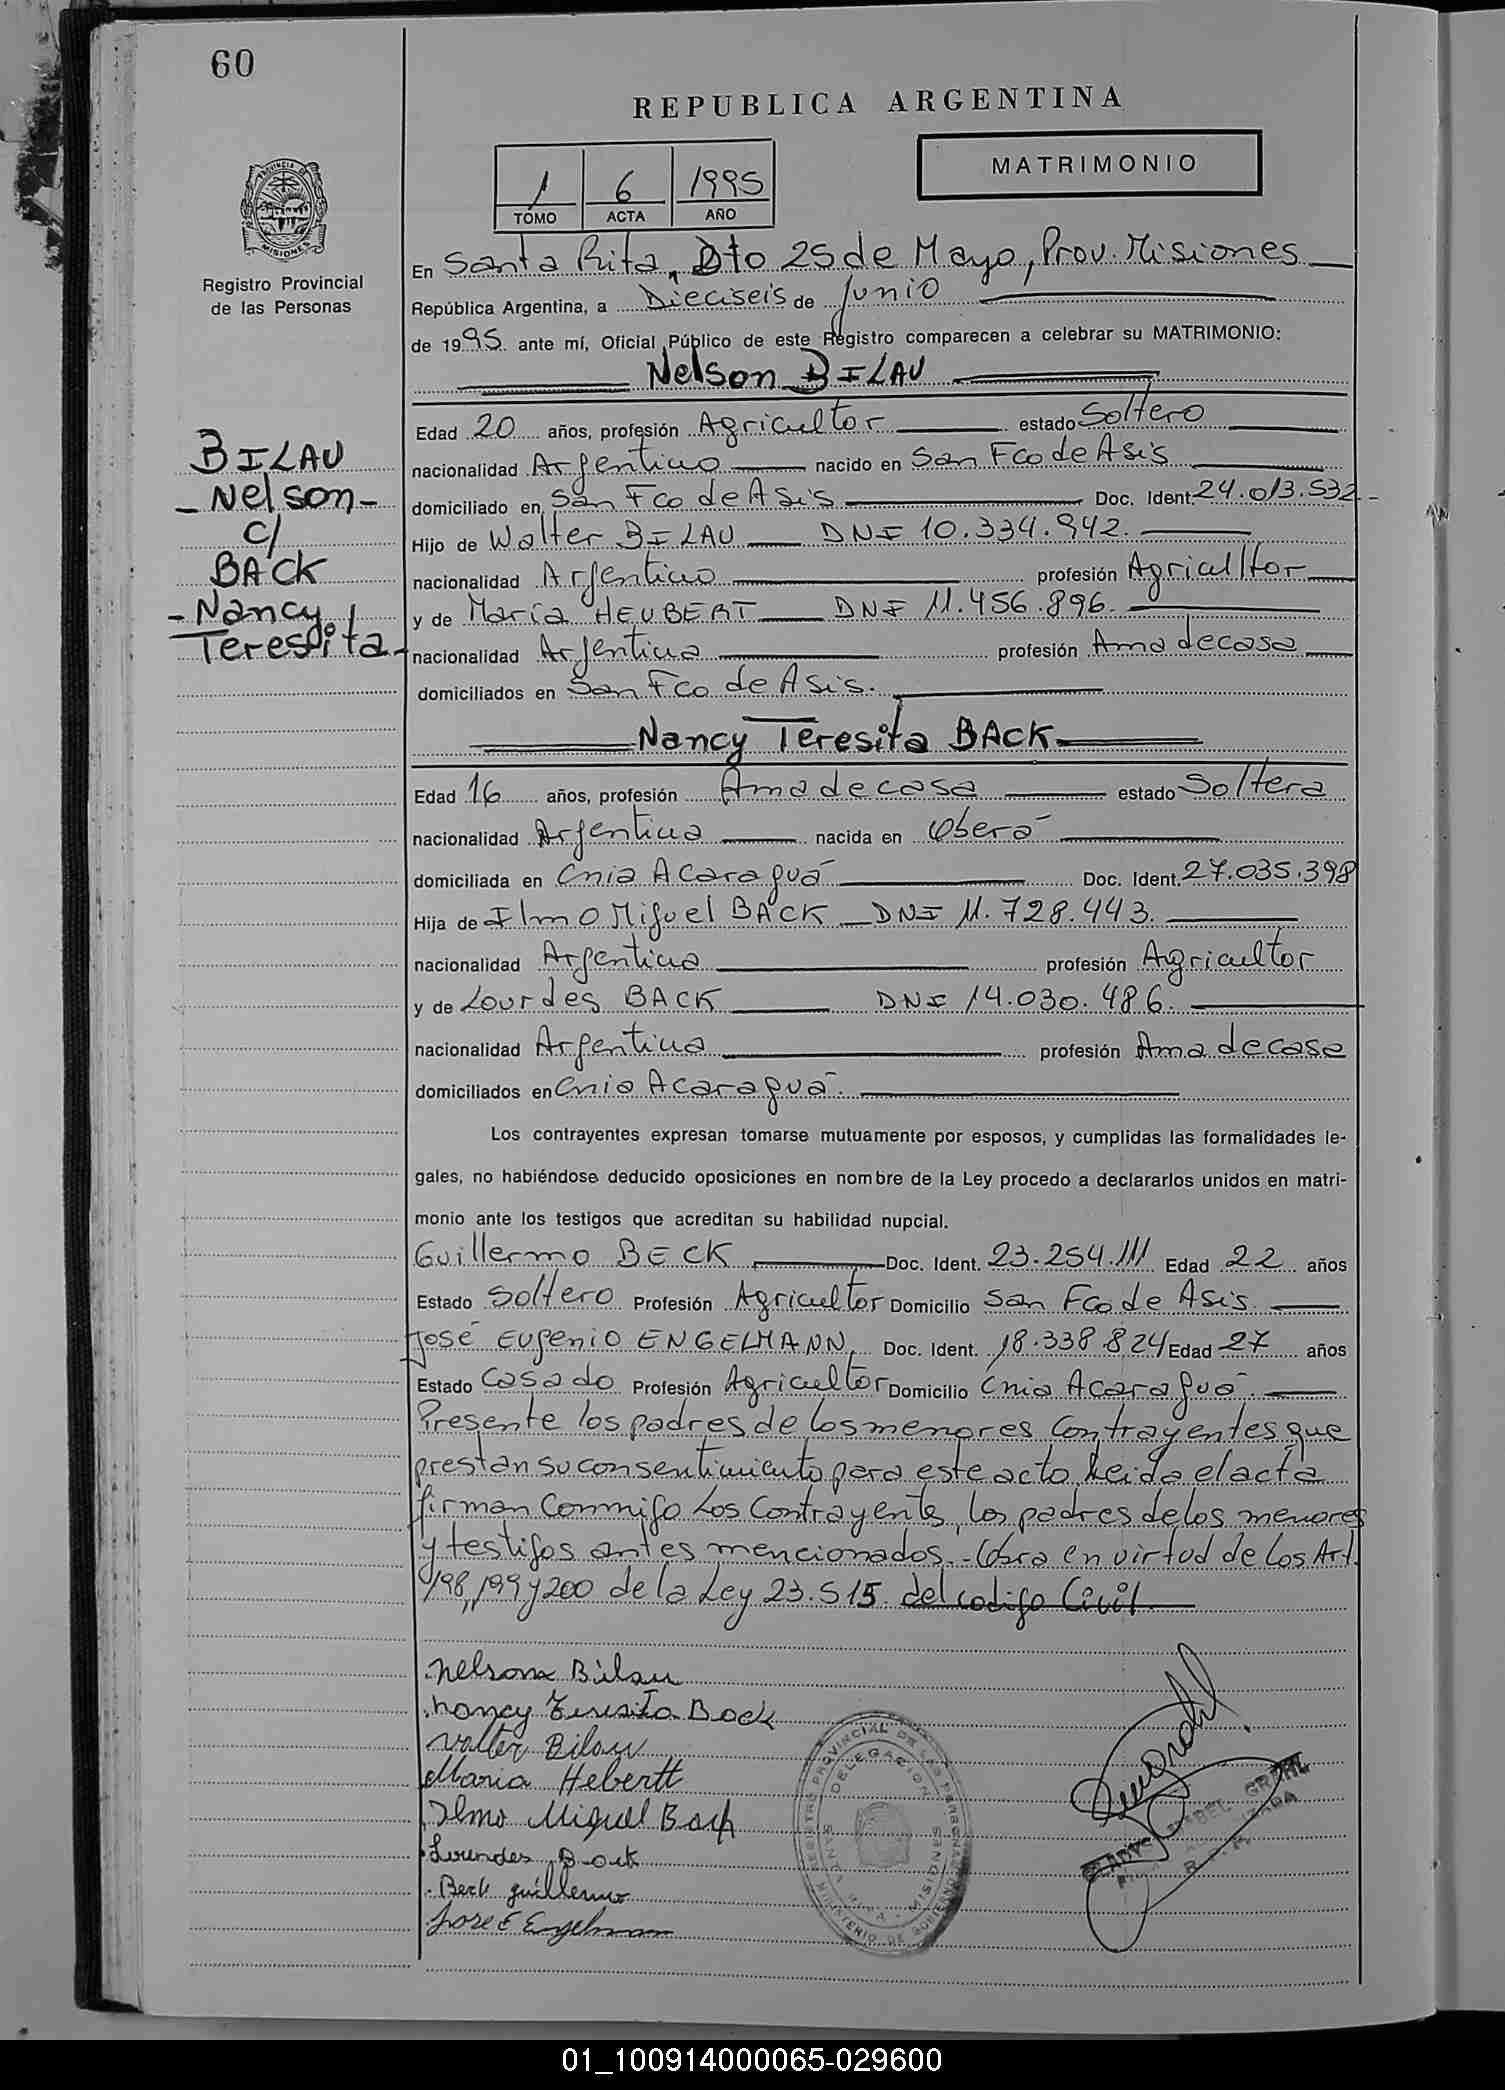 60
REPUBLICA ARGENTINA
MATRIMONIO
1 6 1995
TOMO ACTA AÑO
PROVINCIA DE MISIONES
Registro Provincial
de las Personas
En Santa Rita, Dto 25 de Mayo, Prov. Misiones
República Argentina, a Dieciseis de Junio
de 1995 ante mí, Oficial Público de este Registro comparecen a celebrar su MATRIMONIO:
Nelson BILAU
BILAU
- Nelson -
c/
BACK
- Nancy
Teresita -
Edad 20 años, profesión Agricultor estado Soltero
nacionalidad Argentino nacido en San Fco de Asis
domiciliado en San Fco de Asis Doc. Ident. 24.013.532-
Hijo de Walter BILAU DNI 10.334.942.
nacionalidad Argentino profesión Agricultor
y de María HEUBERT DNI 11.456.896.
nacionalidad Argentina profesión Ama de casa
domiciliados en San Fco de Asis.
Nancy Teresita BACK
Edad 16 años, profesión Ama de casa estado Soltera
nacionalidad Argentina nacida en Oberá
domiciliada en Cnia Acaraguá Doc. Ident. 27.035.398
Hija de Ilmo Miguel BACK DNI 11.728.443.
nacionalidad Argentino profesión Agricultor
y de Lourdes BACK DNI 14.030.486.
nacionalidad Argentina profesión Ama de casa
domiciliados en Cnia Acaraguá.
Los contrayentes expresan tomarse mutuamente por esposos, y cumplidas las formalidades le-
gales, no habiéndose deducido oposiciones en nombre de la Ley procedo a declararlos unidos en matri-
monio ante los testigos que acreditan su habilidad nupcial.
Guillermo BECK Doc. Ident. 23.254.111 Edad 22 años
Estado Soltero Profesión Agricultor Domicilio San Fco de Asis.
José Eugenio ENGELMANN, Doc. Ident. 18.338.824 Edad 27 años
Estado Casado Profesión Agricultor Domicilio Cnia Acaraguá.
Presente los padres de los menores contrayentes que
prestan su consentimiento para este acto. Leida el acta
firman conmigo Los Contrayentes, los padres de los menores
y testigos antes mencionados.- Obra en virtud de los Art.
198, 199 y 200 de la Ley 23.515. del codigo Civil
Nelson Bilau
Nancy Teresita Back
Walter Bilau
Maria Hebertt
Ilmo Miguel Back
Lourdes Back
Beck Guillermo
Jose E Engelman
REGISTRO PROVINCIAL DE LAS PERSONAS
DELEGACION
SANTA RITA - MISIONES
MINISTERIO DE GOBIERNO
GLADYS ISABEL GRAHL
01_100914000065-029600